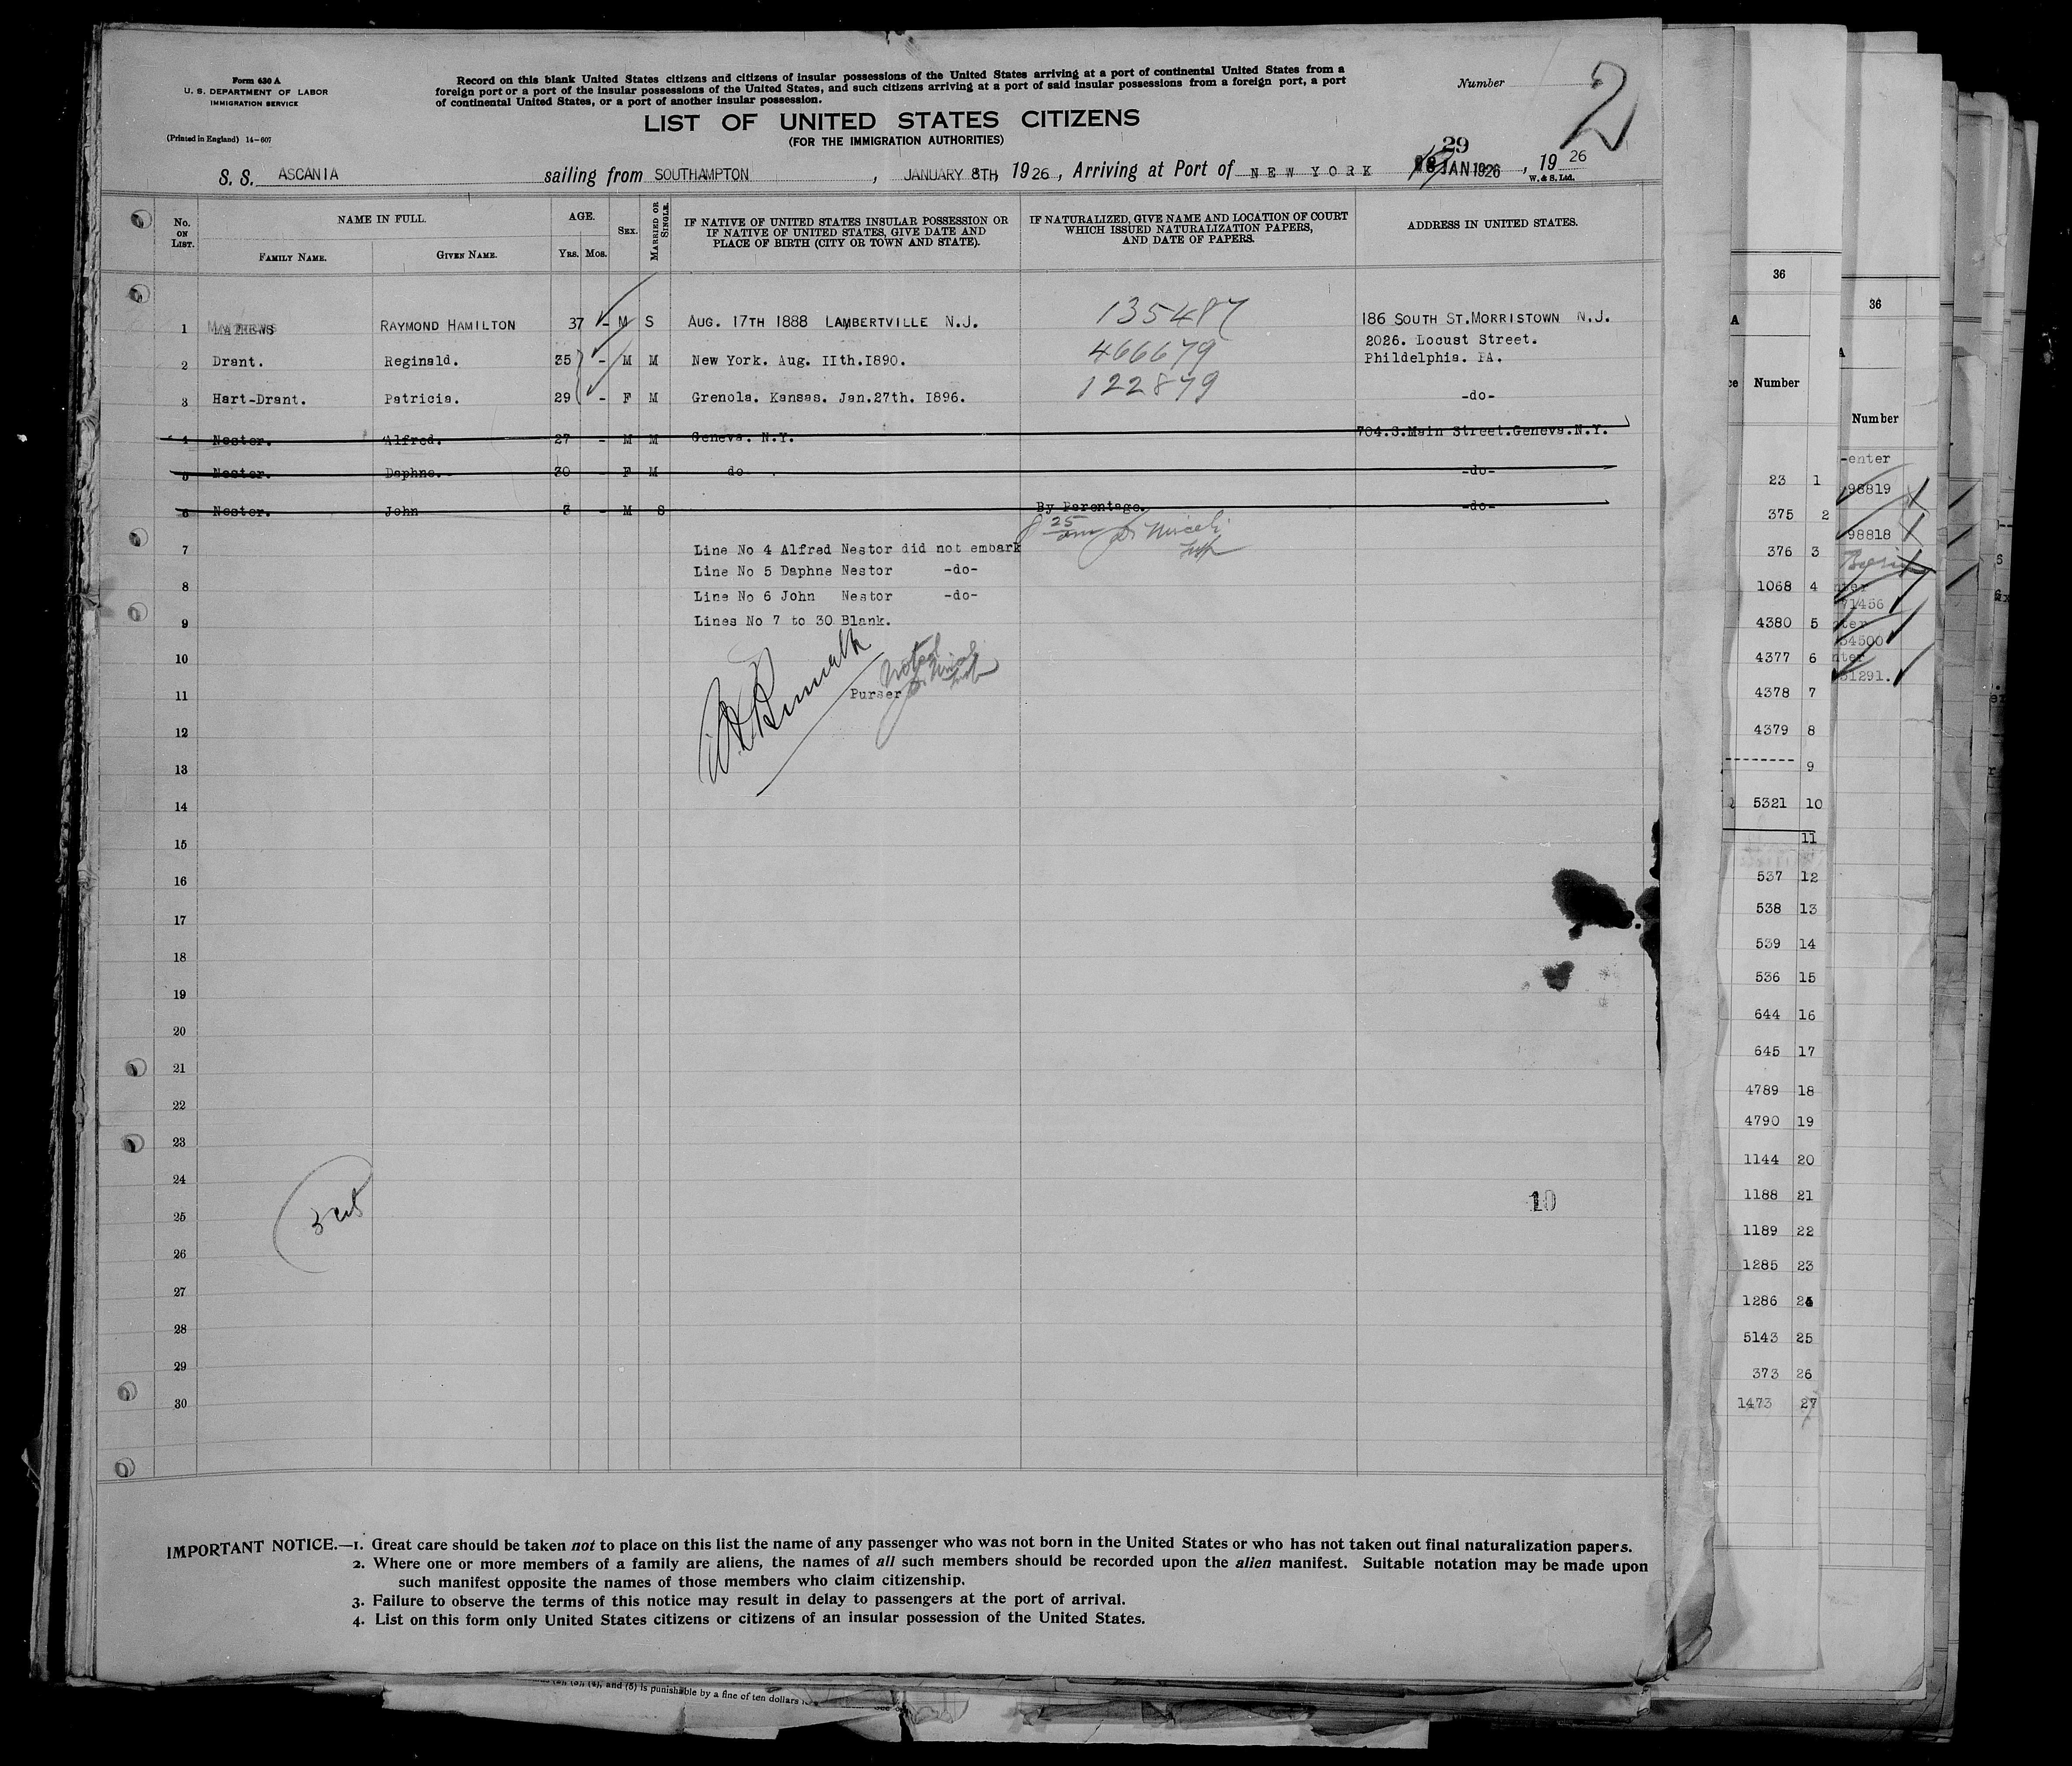 Form 630 A
U. S. DEPARTMENT OF LABOR
IMMIGRATION SERVICE
(Printed in England) 14-607
Record on this blank United States citizens and citizens of insular possessions of the United States arriving at a port of continental United States from a
foreign port or a port of the insular possessions of the United States, and such citizens arriving at a port of said insular possessions from a foreign port, a port
of continental United States, or a port of another insular possession.
Number
2
LIST OF UNITED STATES CITIZENS
(FOR THE IMMIGRATION AUTHORITIES)
29
S. S. ASCANIA sailing from SOUTHAMPTON, JANUARY 8TH, 1926, Arriving at Port of NEW YORK JAN 1926, 1926
W. & S. Ltd.
No. ON LIST.
NAME IN FULL.
FAMILY NAME.
GIVEN NAME.
AGE.
YRS. MOS.
SEX.
MARRIED OR SINGLE.
IF NATIVE OF UNITED STATES INSULAR POSSESSION OR
IF NATIVE OF UNITED STATES, GIVE DATE AND
PLACE OF BIRTH (CITY OR TOWN AND STATE).
IF NATURALIZED, GIVE NAME AND LOCATION OF COURT
WHICH ISSUED NATURALIZATION PAPERS,
AND DATE OF PAPERS.
ADDRESS IN UNITED STATES.
1 MATHEWS RAYMOND HAMILTON 37 - M S AUG. 17TH 1888 LAMBERTVILLE N.J. 135487 186 SOUTH ST. MORRISTOWN N.J.
2026. Locust Street.
2 Drant. Reginald. 35 - M M New York. Aug. IIth. I890. 466679 Phildelphia. PA.
3 Hart-Drant. Patricia. 29 - F M Grenola. Kansas. Jan.27th. I896. 122879 -do-
4 Nester. Alfred. 27 - M M Geneva. N.Y. 704.S.Main Street.Geneva.N.Y.
5 Nester. Daphne. 30 - F M do -do-
6 Nester. John 3 - M S By Parentage. -do-
25
7 Line No 4 Alfred Nestor did not embark
Line No 5 Daphne Nestor -do-
8
Line No 6 John Nestor -do-
9 Lines No 7 to 30 Blank.
10
Noted
11 Purser
12
13
14
15
16
17
18
19
20
21
22
23
24
10
25
26
27
28
29
30
IMPORTANT NOTICE.—1. Great care should be taken not to place on this list the name of any passenger who was not born in the United States or who has not taken out final naturalization papers.
2. Where one or more members of a family are aliens, the names of all such members should be recorded upon the alien manifest. Suitable notation may be made upon
such manifest opposite the names of those members who claim citizenship.
3. Failure to observe the terms of this notice may result in delay to passengers at the port of arrival.
4. List on this form only United States citizens or citizens of an insular possession of the United States.
and (5) is punishable by a fine of ten dollars
36
A
Number
23 1
375 2
376 3
1068 4
4380 5
4377 6
4378 7
4379 8
9
5321 10
11
537 12
538 13
539 14
536 15
644 16
645 17
4789 18
4790 19
1144 20
1188 21
1189 22
1285 23
1286 24
5143 25
373 26
1473 27
36
Number
-enter
98819
98818
71456
54500
51291.